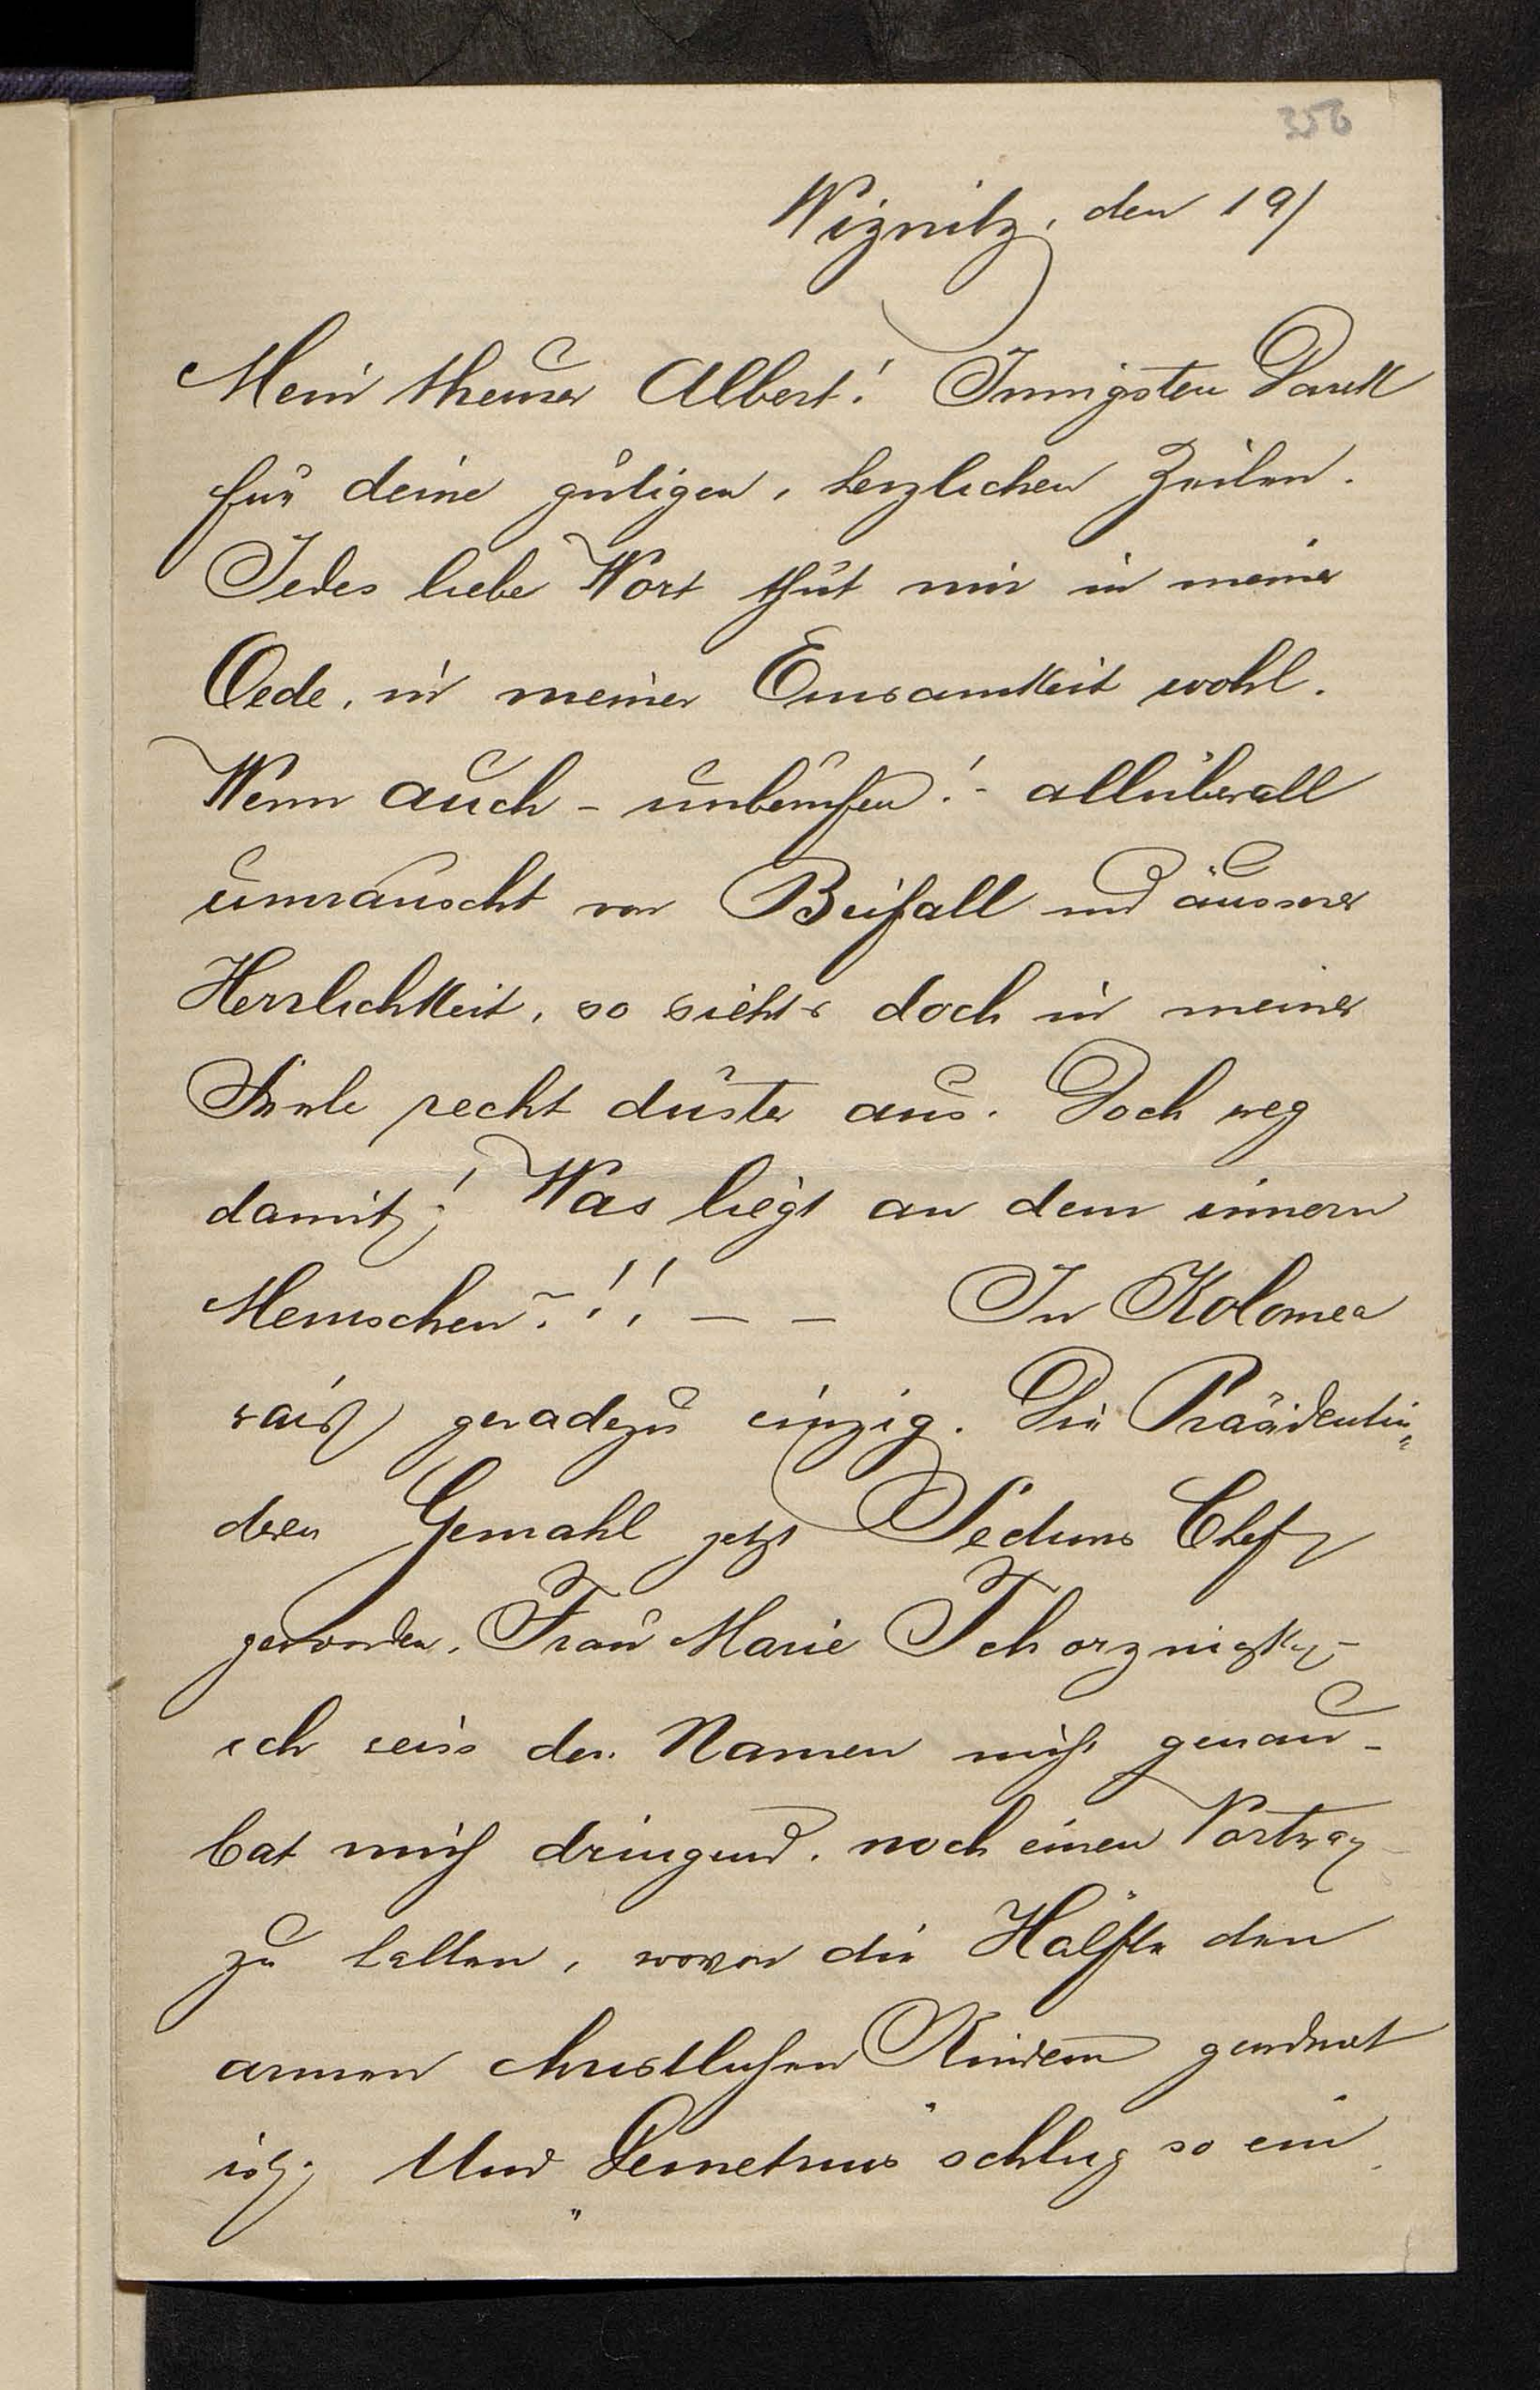 356
Wiznitz, den 19/
Mein theurer Albert! Innigsten Dank
für deine gütigen, herzlichen Zeilen.
Jedes liebe Wort thut mir in meiner
Oede, in meiner Einsamkeit wohl.
Wenn auch - unberufen! - allüberall
umrauscht von Beifall und äusserer
Herrlichkeit, so sieht's doch in meiner
Seele recht düster aus. Doch weg
damit! Was liegt an dem innern
Menschen?!! — — In Kolomea
war's geradezu einzig. Die Präsidentin,
deren Gemahl jetzt Chef
geworden, Frau Marie
ich weiss den Namen nicht genau -
bat mich dringend, noch einen Vortrag
zu halten, wovon die Hälfte den
armen christlichen Kindern gewidmet
ist. Und „Demetrius" schlug so ein